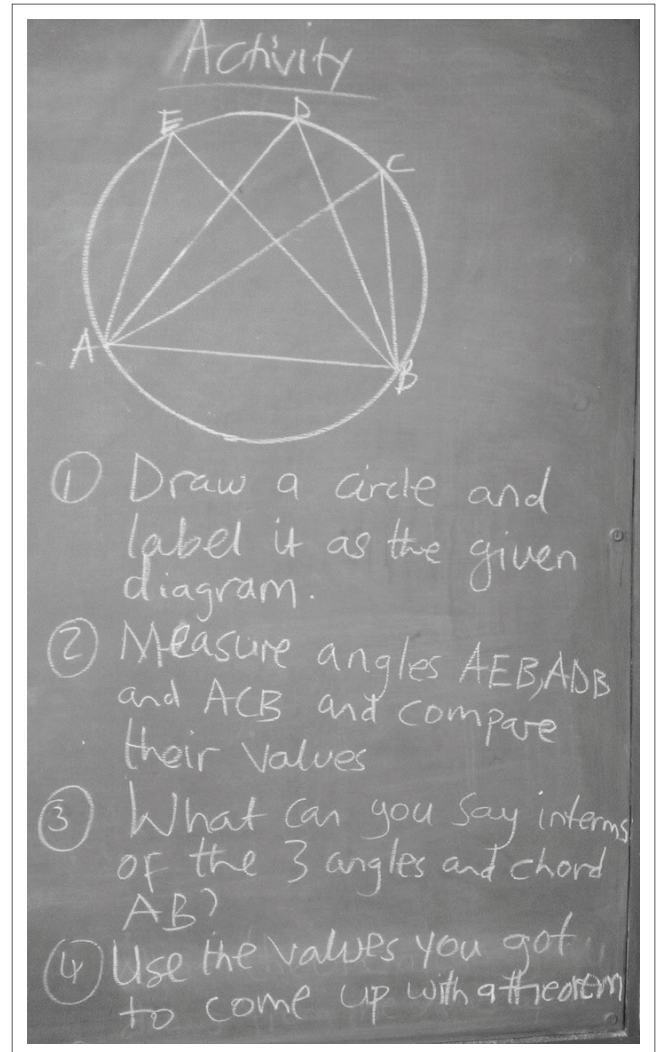 Activity
E
D
C
A
B
① Draw a circle and
label it as the given
diagram.
② Measure angles AEB, ADB
and ACB and compare
their values
③ What can you say interms
of the 3 angles and chord
AB?
④ Use the values you got
to come up with a theorem